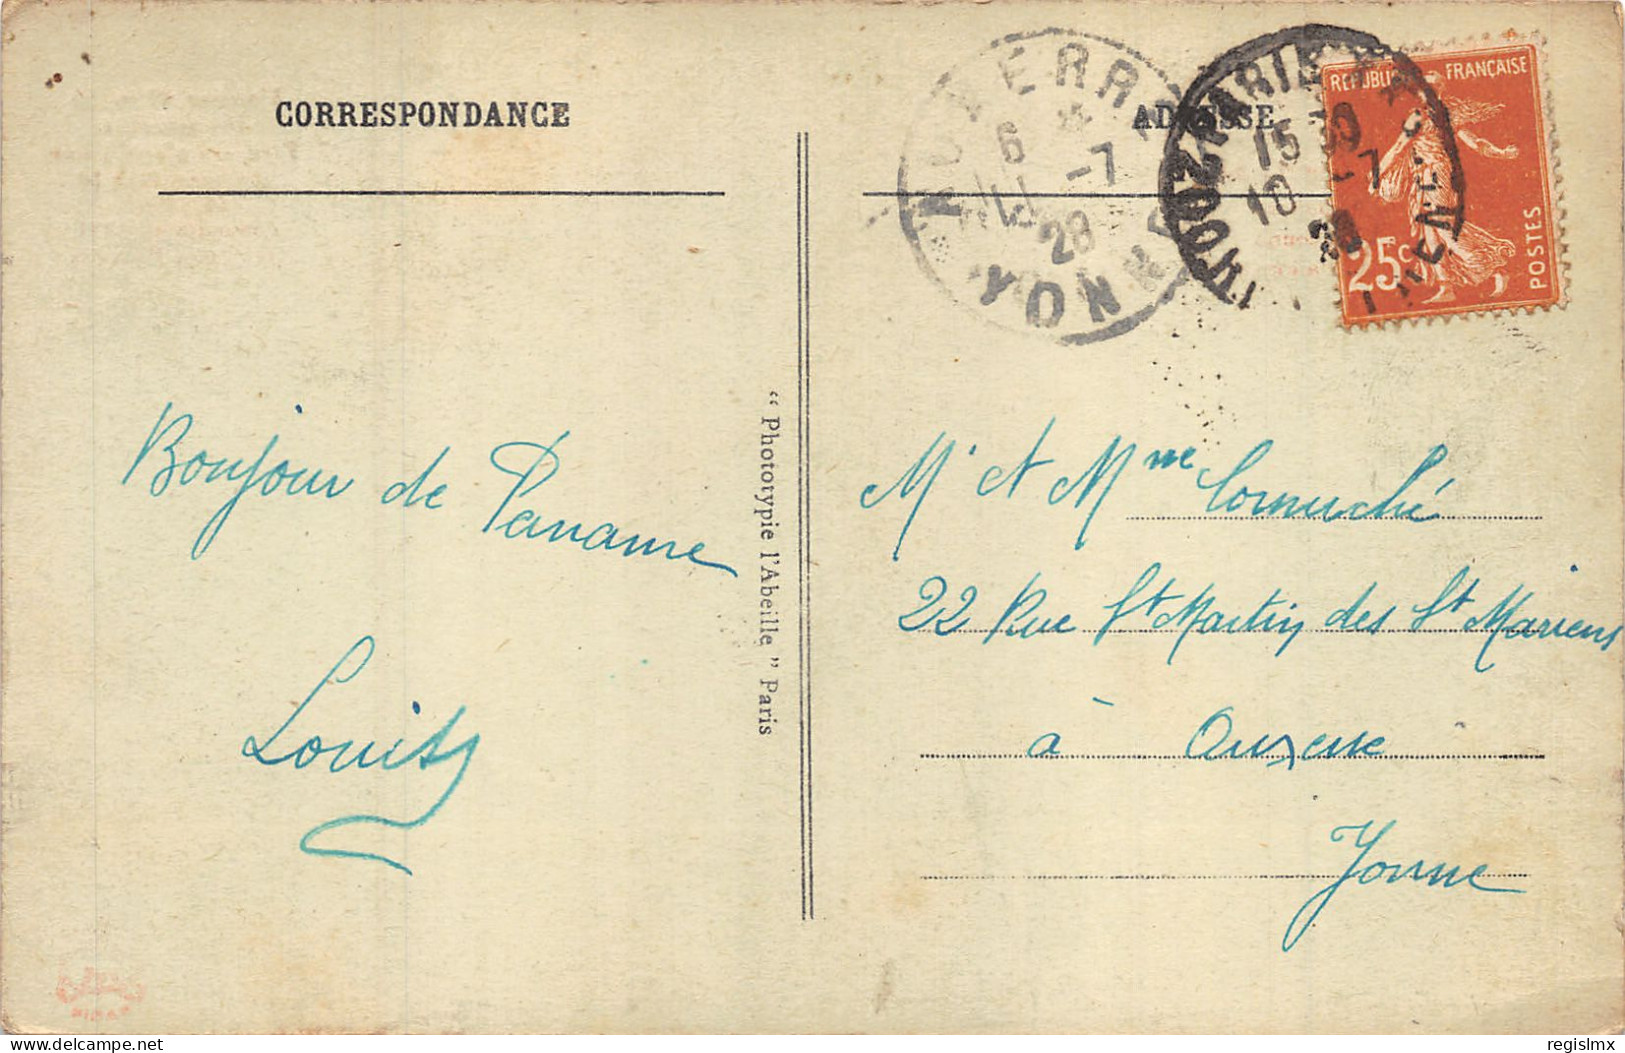 CORRESPONDANCE
ADRESSE
RÉPUBLIQUE FRANÇAISE
25c
POSTES
AUXERRE
6
-7
28
YONNE
15 30
10 -7
28
Bonjour de Paname
Louis
" Phototypie l'Abeille " Paris
Mr et Mme Cornuché
22 Rue St Martin des St Mariens
à Auxerre
Yonne
delcampe.net
regislmx